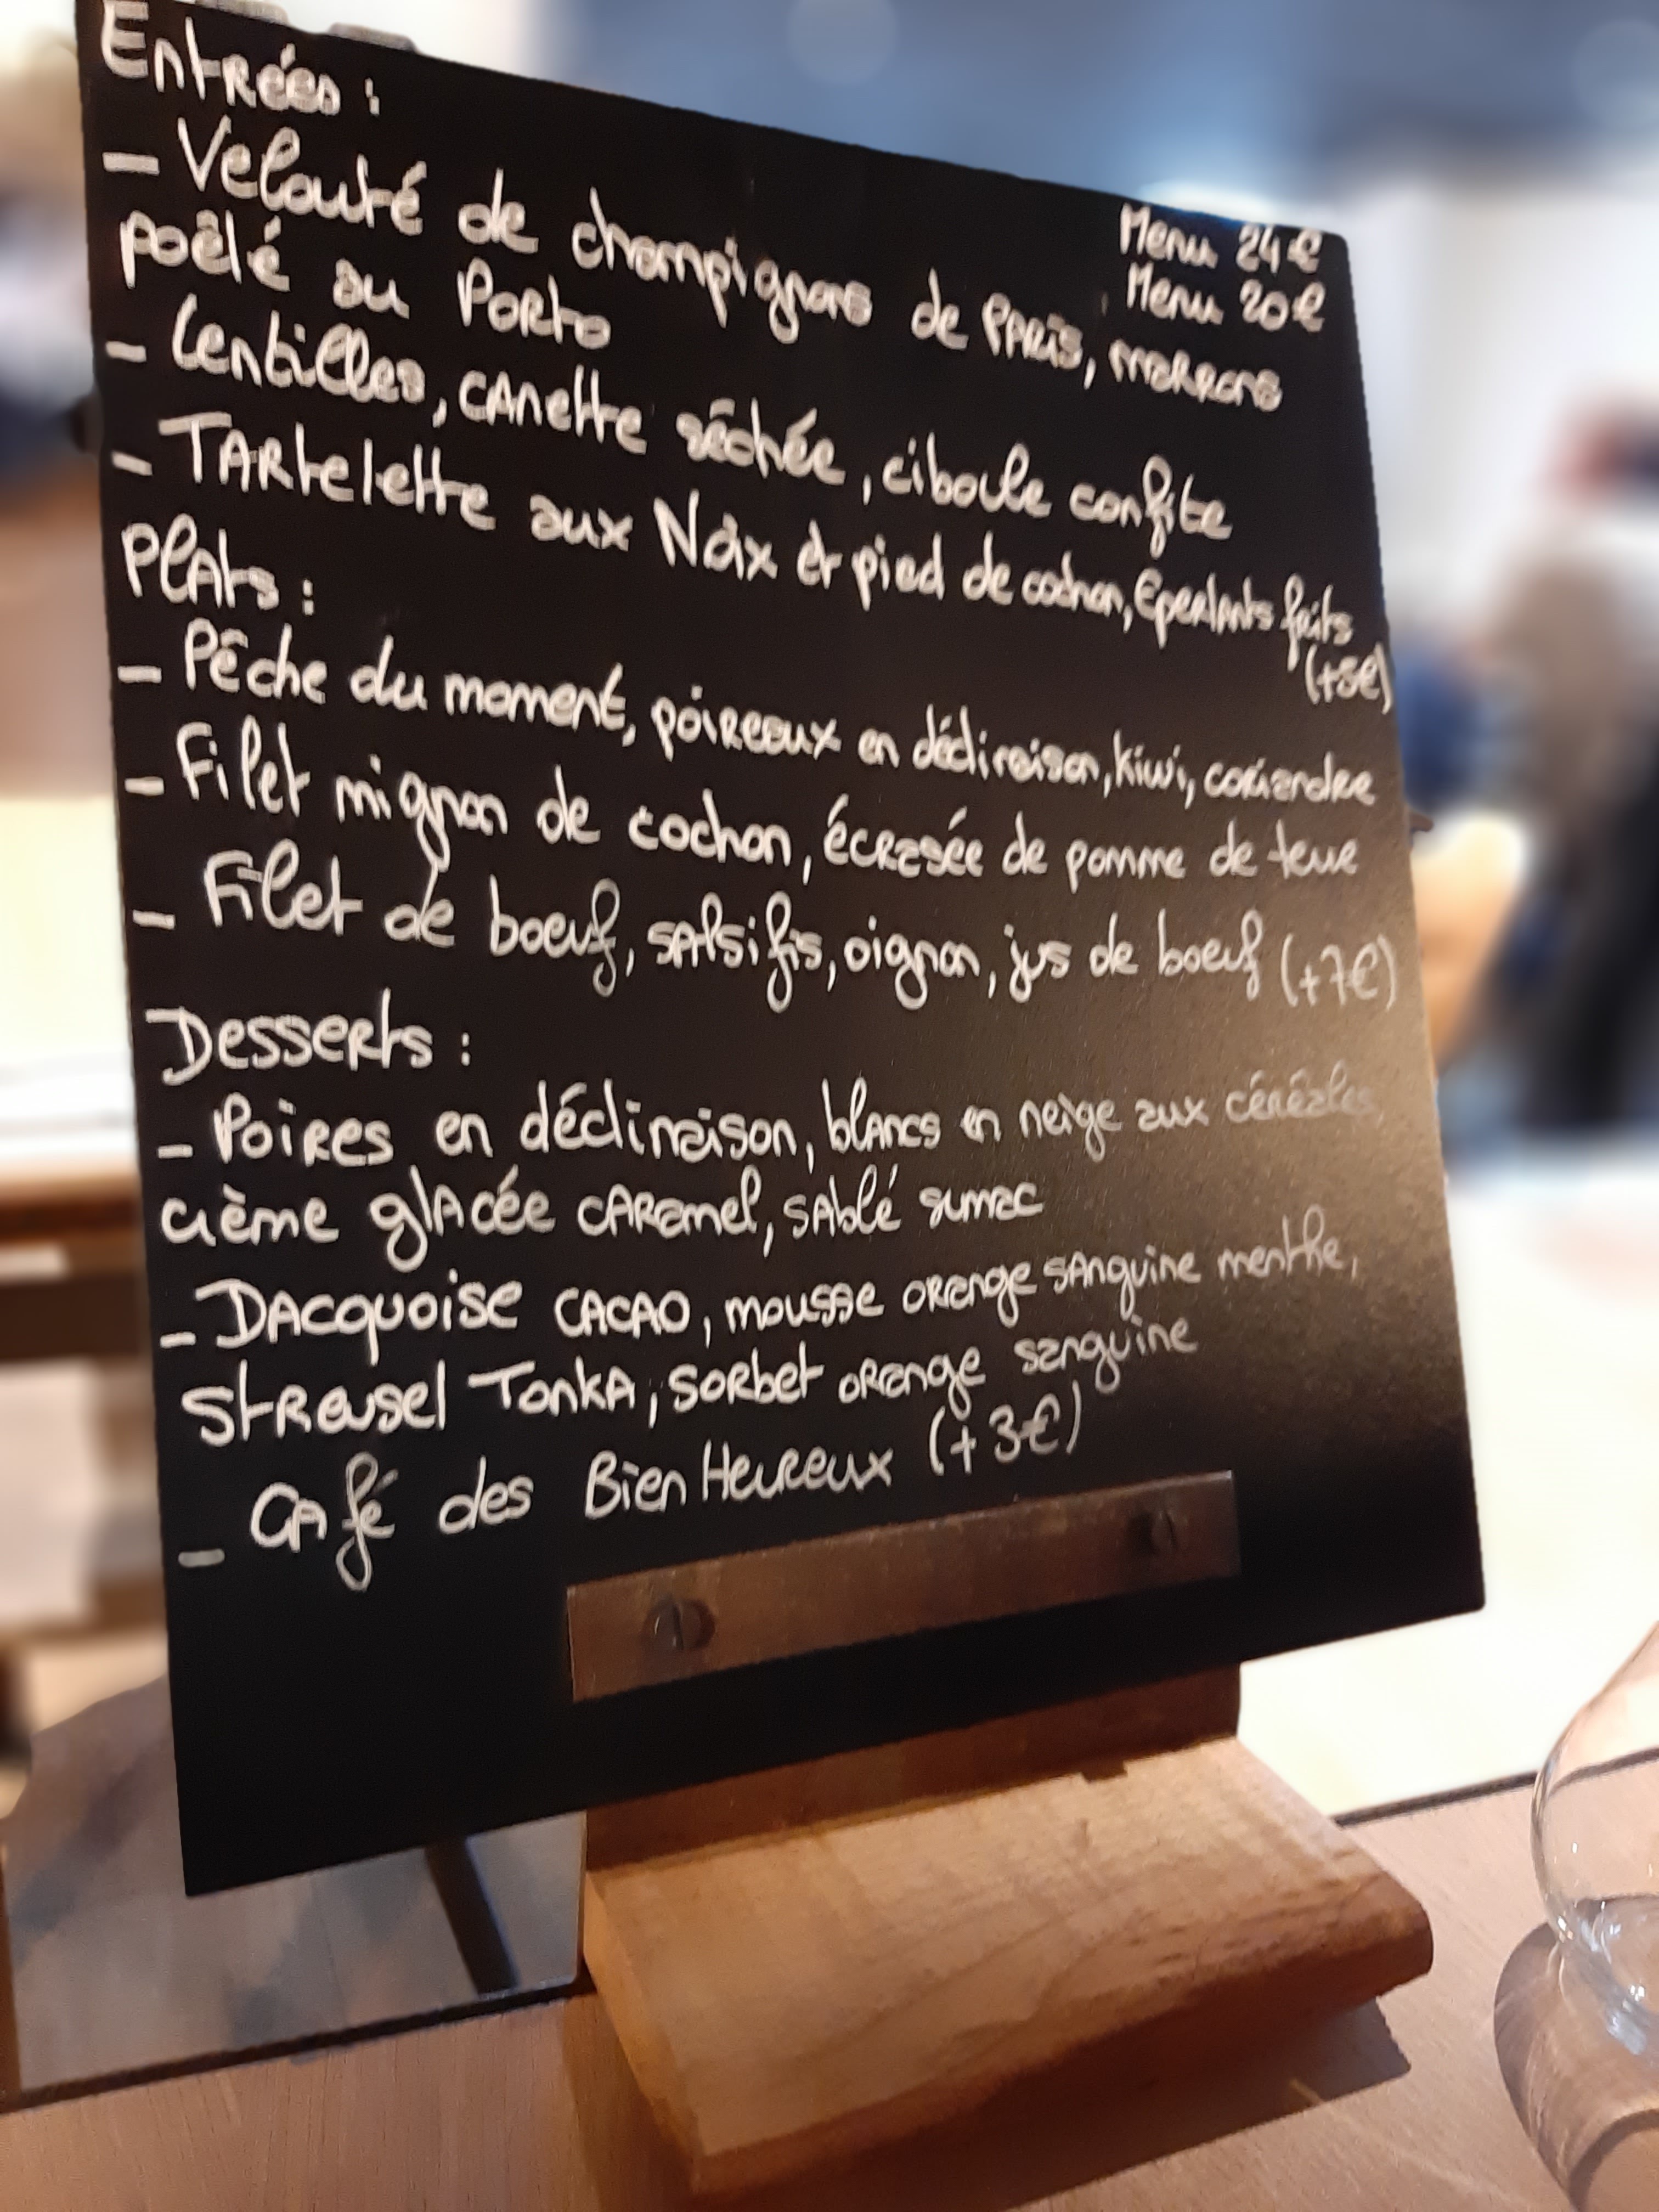 Entrées :
Menu 24€
Menu 20€
- Velouté de champignons de PARis, marrons
poêlé au Porto
- Lentilles, canette séchée, ciboule confite
- Tartelette aux Noix et pied de cochon, Eperlants frits
(+5€)
Plats :
- Pêche du moment, poireaux en déclinaison, kiwi, coriandre
- Filet mignon de cochon, écrasée de pomme de terre
- Filet de boeuf, salsifis, oignon, jus de boeuf (+7€)
Desserts :
- Poires en déclinaison, blancs en neige aux céréales,
crème glacée caramel, sablé sumac
- Dacquoise cacao, mousse orange sanguine menthe,
streusel Tonka, sorbet orange sanguine
- Café des Bien Heureux (+3€)